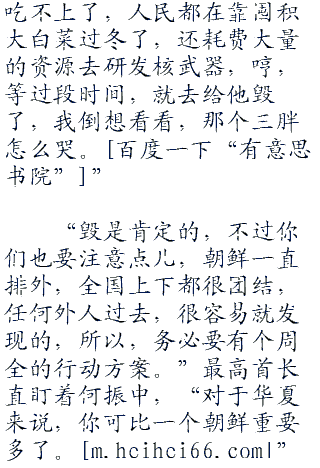 吃不上了，人民都在靠囤积
大白菜过冬了，还耗费大量
的资源去研发核武器，哼，
等过段时间，就去给他毁
了，我倒想看看，那个三胖
怎么哭。[百度一下“有意思
书院”]”
“毁是肯定的，不过你
们也要注意点儿，朝鲜一直
排外，全国上下都很团结，
任何外人过去，很容易就发
现的，所以，务必要有个周
全的行动方案。”最高首长
直盯着何振中，“对于华夏
来说，你可比一个朝鲜重要
多了。[m.hcihci66.com|”